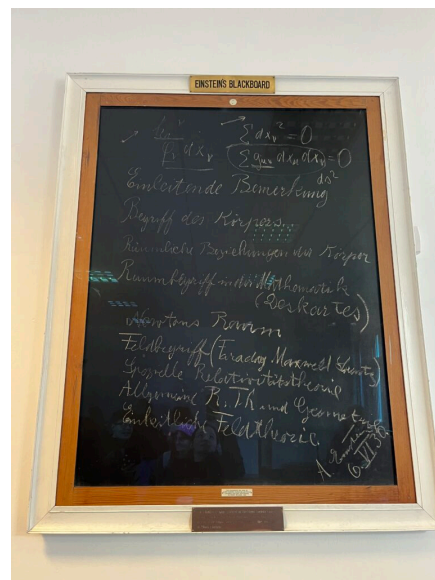 EINSTEIN'S BLACKBOARD
Σ dxᵥ² = 0
dxᵥ
Σ gμν dxμ dxν = 0
ds²
Einleitende Bemerkung
Begriff des Körpers
Räumliche Beziehungen der Körper
Raumbegriff in der Mathematik
(Deskartes)
Newtons Raum
Feldbegriff (Faraday Maxwell Lorentz)
Spezielle Relativitätstheorie
Allgemeine R. Th und Geometrie
Einheitliche Feldtheorie.
A. Einstein
6. VI 30.